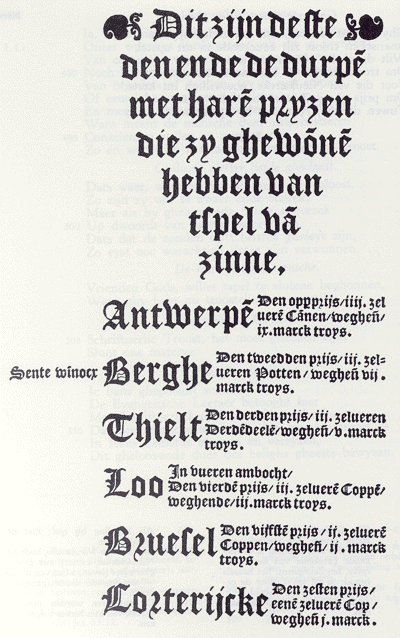 Dit zijn de ste
den ende de durpē
met harē pryzen
die zy ghewōnē
hebben van
tspel vā
zinne,
Antwerpē
Den oppprijs/iiij. zel
uerē Cānen/weghēn/
ix.marck troys.
Sente winocx Berghe
Den tweedden prijs/ iij. zel=
ueren Potten/ weghēn vij.
marck troys.
Thielt
Den derden prijs/ iij. zelueren
Derdēdeelē/weghēn/v.marck
troys.
Loo
In vueren ambocht/
Den vierdē prijs/ iij. zeluerē Coppē/
weghende/iij.marck troys.
Bruesel
Den vijfstē prijs/ ij. zeluerē
Coppen/weghēn/ ij. marck
troys.
Corterijcke
Den zesten prijs/
eenē zeluerē Cop/
weghēn j. marck.